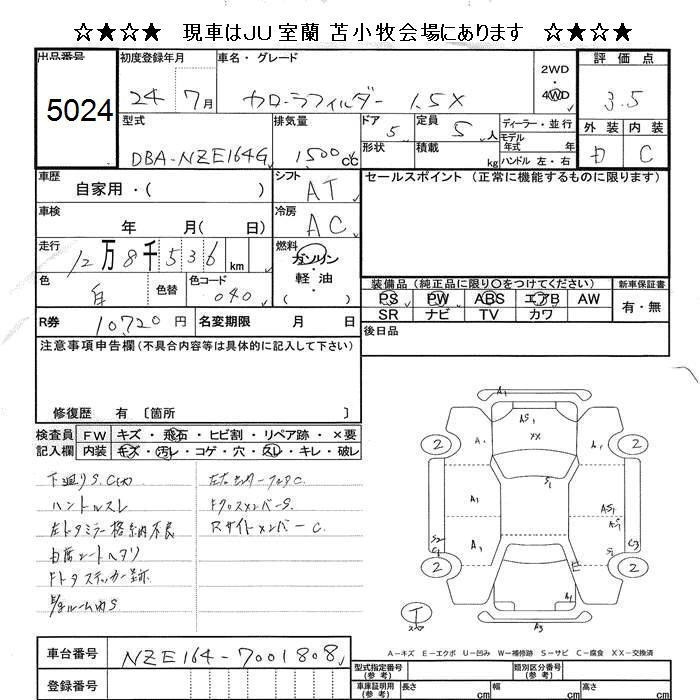 ☆★☆★ 現車はJU室蘭 苫小牧会場にあります ☆★☆★
出品番号 初度登録年月 車名・グレード 評価点
5024 24 7月 カローラフィルダー 1.5X 2WD 4WD 3.5
型式 排気量 ドア 定員 ディーラー・並行 外装 内装
DBA-NZE164G 1500cc 5 5人 モデル年式 年 D C
形状 積載 kg ハンドル 左・右
車歴 自家用・( ) シフト AT セールスポイント(正常に機能するものに限ります)
車検 年 月(日) 冷房 AC
走行 12万8千536km 燃料 ガソリン・軽油( )
色 白 色替 色コード 040
装備品(純正品に限り○をつけてください) 新車保証書
PS PW ABS エアB AW 有・無
SR ナビ TV カワ
R券 10720円 名変期限 月 日 後日品
注意事項申告欄(不具合内容等は具体的に記入して下さい)
修復歴 有〔箇所 〕
検査員 FW キズ・飛石・ヒビ割・リペア跡・×要
記入欄 内装 キズ・汚レ・コゲ・穴・スレ・キレ・破レ
下廻りS.C(大)
ハンドルスレ
左ドアミラー格納不良
内席シートヘタリ
FドアステッカーS跡
ルーム内S
FクロスメンバーS.
RサイドメンバーC.
A1
AS1
A1 XX A1
2 2
S1
A1 AS1
AS1
S2 C1 A1 E C3
2 2
A1
T
A3
A-キズ E-エクボ U-凹み W-補修跡 S-サビ C-腐食 XX-交換済
車台番号 NZE164-7001808
登録番号
型式指定番号(参考) 類別区分番号(参考)
車庫証明用(参考) 長さ cm 幅 cm 高さ cm